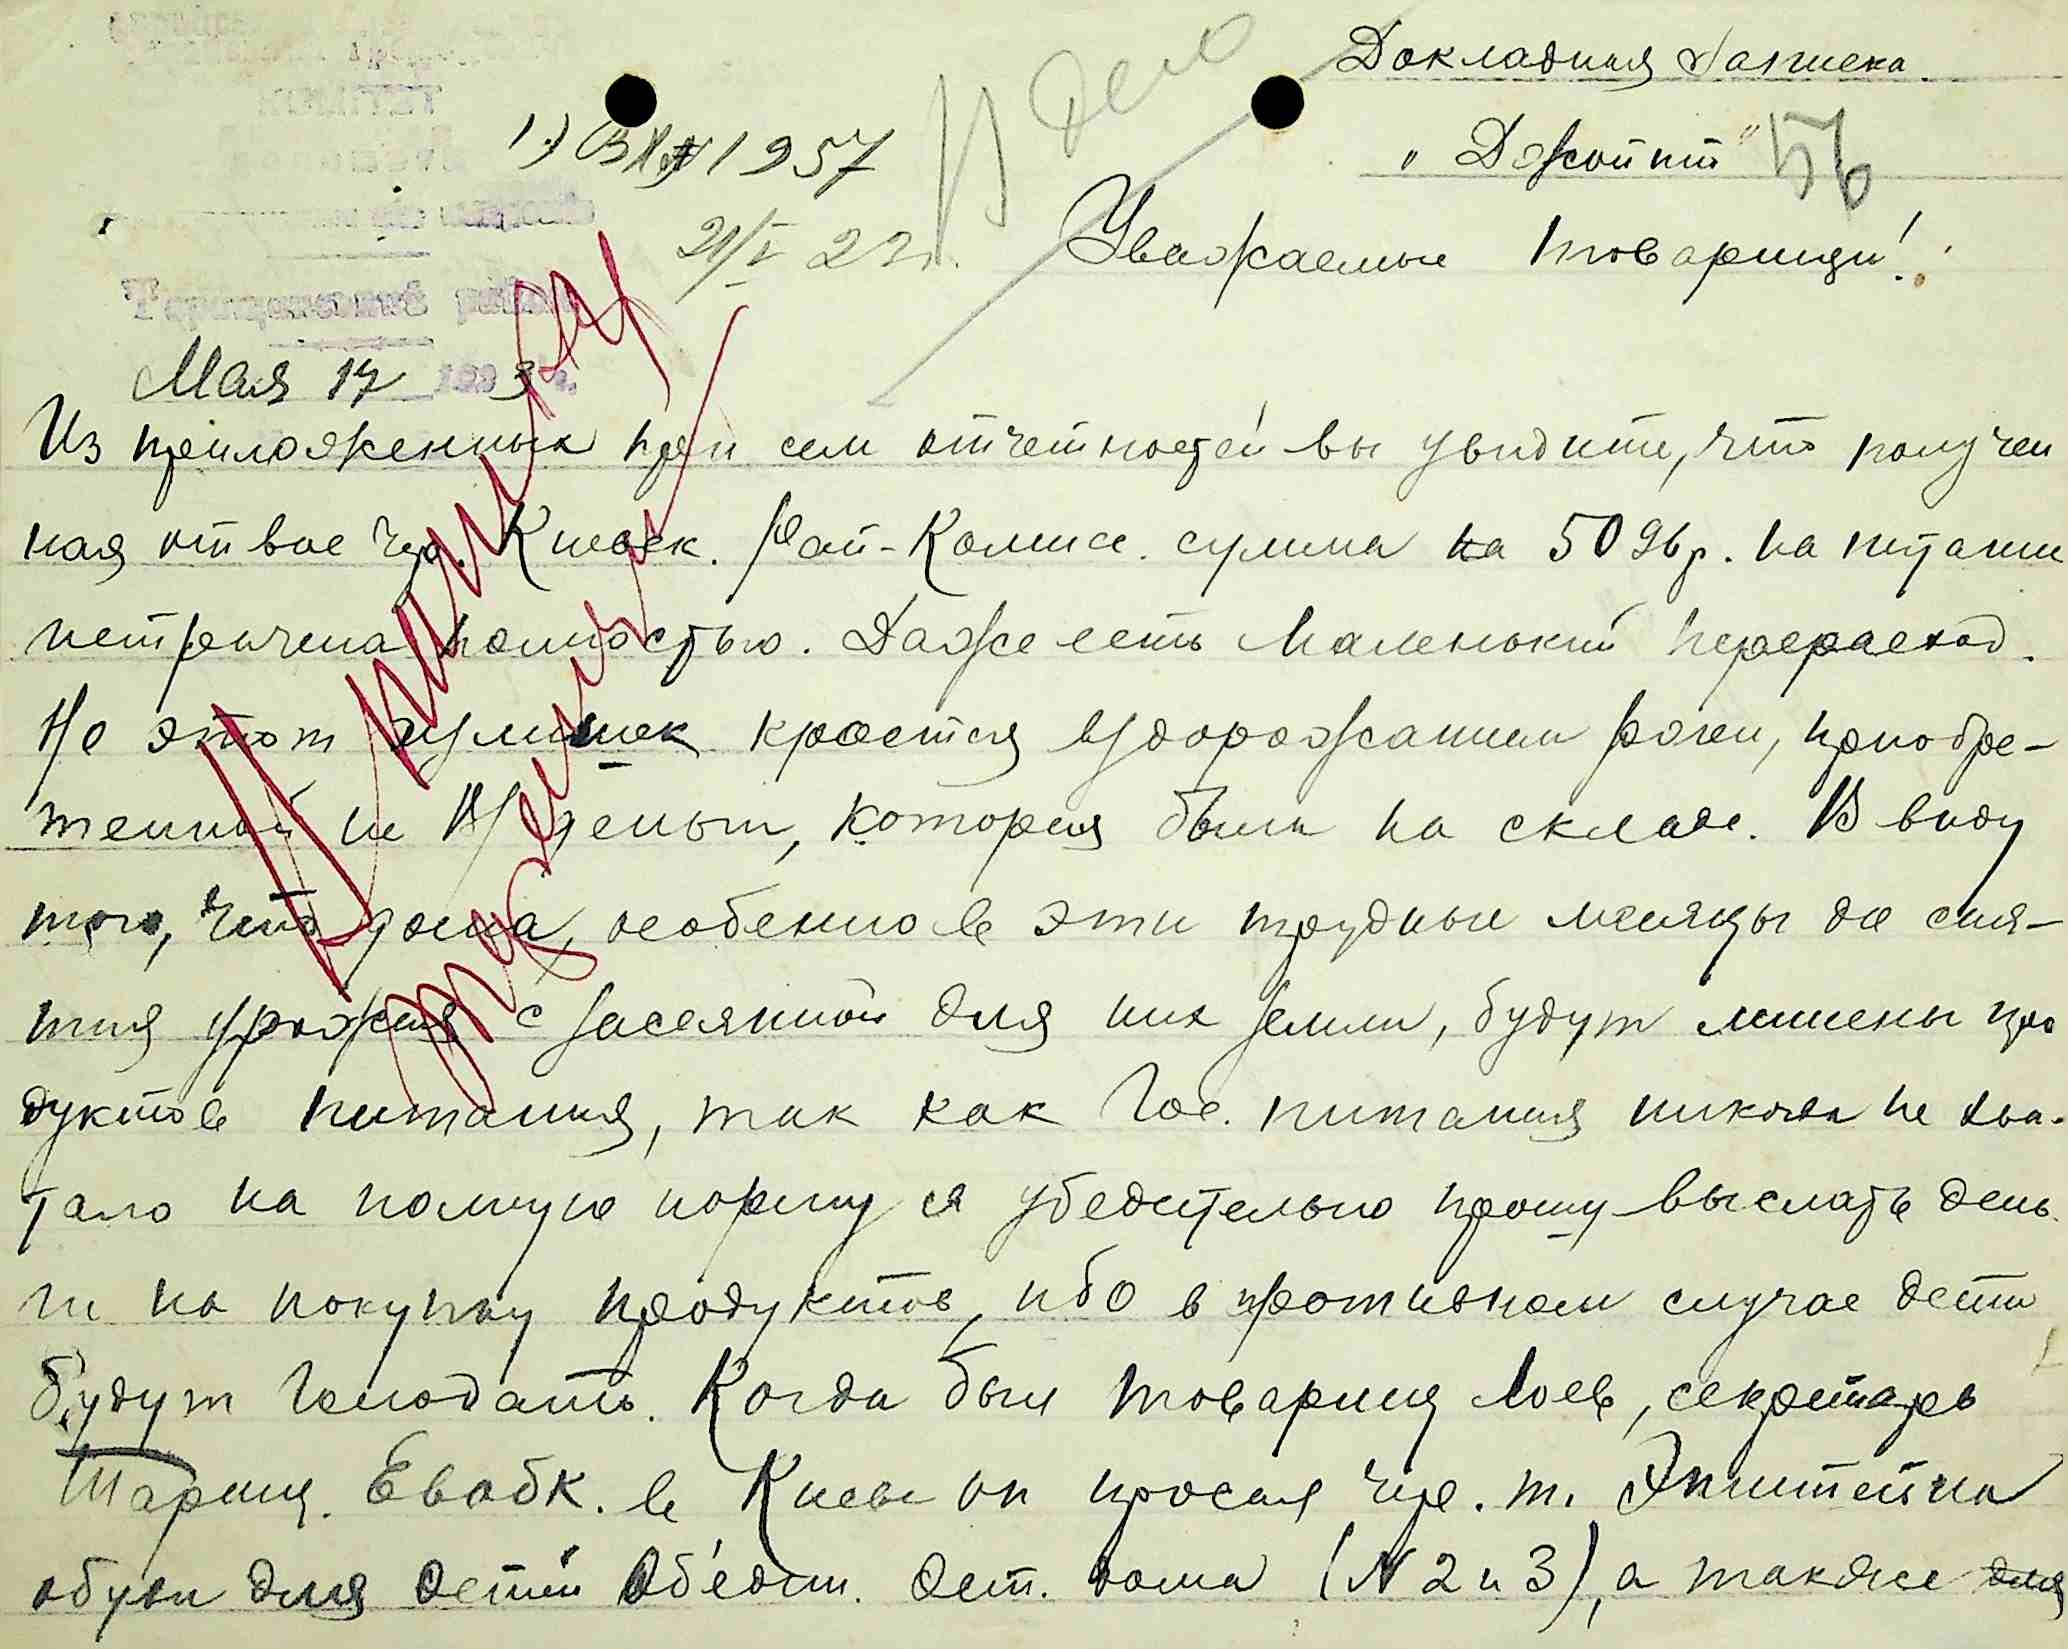 Докладная Записка.
"Джойнт" 56
В дело
1) Вх № 1957
21/V 23 г.
Уважаемые товарищи!
Таращанский район
Мая 17 192 3 г.
Из приложенных при сем отчетностей вы увидите, что получен
ная от вас чрз. Киевск. Рай-Комисс. сумма на 5096 р. на питание
истрачена полностью. Даже есть маленький перерасход.
Но этот кроется вздорожанием ржи, приобре-
тенной не в , которая была на складе. В виду
того, что дома, особенно в эти трудные месяцы до сня-
тия урожая с засеянной для них земли, будут лишены про
дуктов питания, так как Гос. питания никогда не хва-
тало на полную норму я убедительно прошу выслать день-
ги на покупку продуктов, ибо в противном случае дети
будут голодать. Когда был товарищ Лоев, секретарь
Таращ. Евобк. в Киеве он просил чрз. т. Эпштейна
обуви для детей Об'един. дет. дома (N 2 и 3), а также для